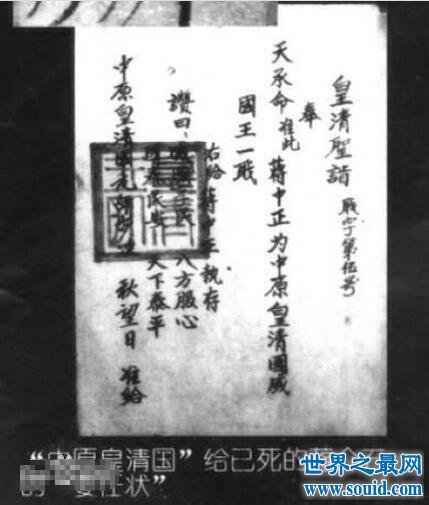 皇清聖詔 戝字第伍号
奉
天承命准此 蔣中正为中原皇清國威
國王一戝
右给蔣中正執存
讚曰:
八方服心
民 天下泰平
中原皇清國元 秋望日 准给
“中原皇清国”给已死的
的“委任状”
世界之最网
www.souid.com